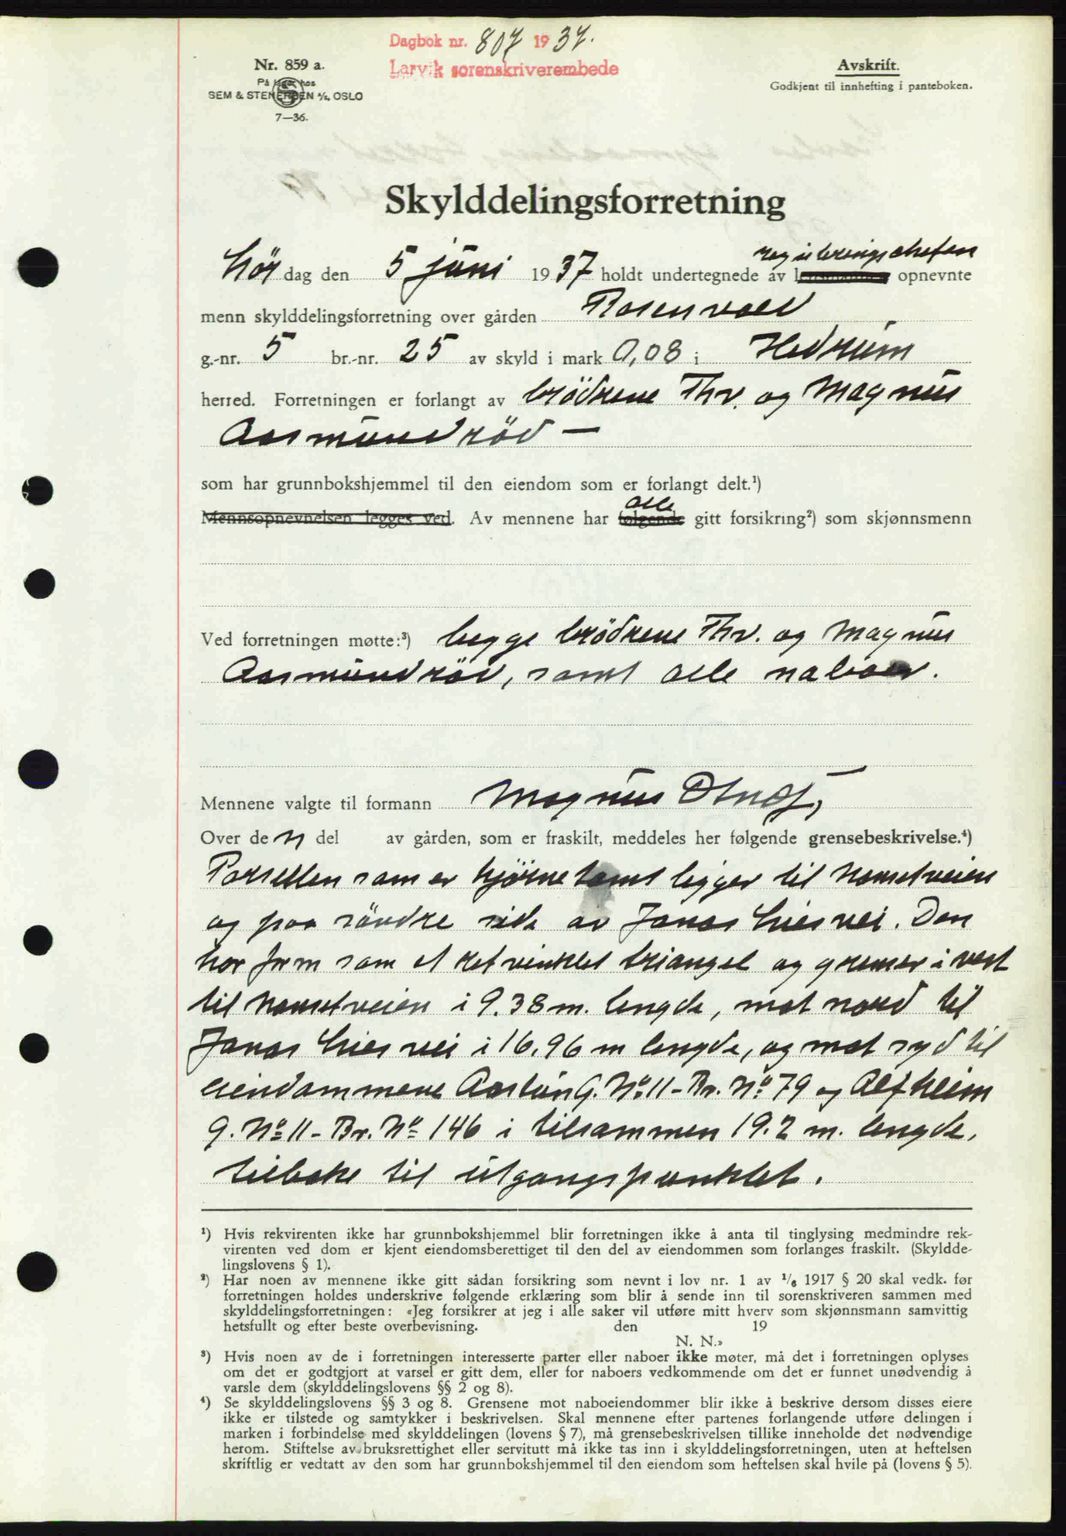 Dagbok nr. 807 1937.
Larvik sorenskriverembede
Nr. 859 a.
På lager hos
SEM & STENERSEN A/S, OSLO
7—36.
Avskrift.
Godkjent til innhefting i panteboken.
Skylddelingsforretning
Lör dag den 5 juni 1937 holdt undertegnede av lensmannen reguleringschefen opnevnte
menn skylddelingsforretning over gården Rosenvold
g.-nr. 5 br.-nr. 25 av skyld i mark 0,08 i Hedrum
herred. Forretningen er forlangt av brödrene Thv. og Magnus
Aasmundröd —
som har grunnbokshjemmel til den eiendom som er forlangt delt.¹)
Mennsopnevnelsen legges ved. Av mennene har følgende alle gitt forsikring²) som skjønnsmenn
Ved forretningen møtte:³) begge brödrene Thv. og Magnus
Aasmundröd, samt alle naboer.
Mennene valgte til formann Magnus
Over den del av gården, som er fraskilt, meddeles her følgende grensebeskrivelse.⁴)
Parsellen som er hjörnetomt ligger til Nansetveien
og paa söndre side av Jonas Lies vei. Den
har form som et retvinklet triangel og grenser i vest
til Nansetveien i 9.38 m. lengde, mot nord til
Jonas Lies vei i 16.96 m lengde, og mot syd til
eiendommene Aaslun G. No 11 - Br. No 79 og Alfheim
g. No 11 - Br. No 146 i tilsammen 19.2 m. lengde,
tilbake til utgangspunktet.
¹) Hvis rekvirenten ikke har grunnbokshjemmel blir forretningen ikke å anta til tinglysing medmindre rek-
virenten ved dom er kjent eiendomsberettiget til den del av eiendommen som forlanges fraskilt. (Skyldde-
lingslovens § 1).
²) Har noen av mennene ikke gitt sådan forsikring som nevnt i lov nr. 1 av 1/6 1917 § 20 skal vedk. før
forretningen holdes underskrive følgende erklæring som blir å sende inn til sorenskriveren sammen med
skylddelingsforretningen: «Jeg forsikrer at jeg i alle saker vil utføre mitt hverv som skjønnsmann samvittig
hetsfullt og efter beste overbevisning. den 19
N. N.»
³) Hvis noen av de i forretningen interesserte parter eller naboer ikke møter, må det i forretningen oplyses
om det er godtgjort at varsel er gitt dem, eller for naboers vedkommende om det er funnet unødvendig å
varsle dem (skylddelingslovens §§ 2 og 8).
⁴) Se skylddelingslovens §§ 3 og 8. Grensene mot naboeiendommer blir ikke å beskrive dersom disses eiere
ikke er tilstede og samtykker i beskrivelsen. Skal mennene efter partenes forlangende utføre delingen i
marken i forbindelse med skylddelingen (lovens § 7), må grensebeskrivelsen tillike inneholde det nødvendige
herom. Stiftelse av bruksrettighet eller servitutt må ikke tas inn i skylddelingsforretningen, uten at heftelsen
skriftlig er vedtatt av den som har grunnbokshjemmel til den eiendom som heftelsen skal hvile på (lovens § 5).